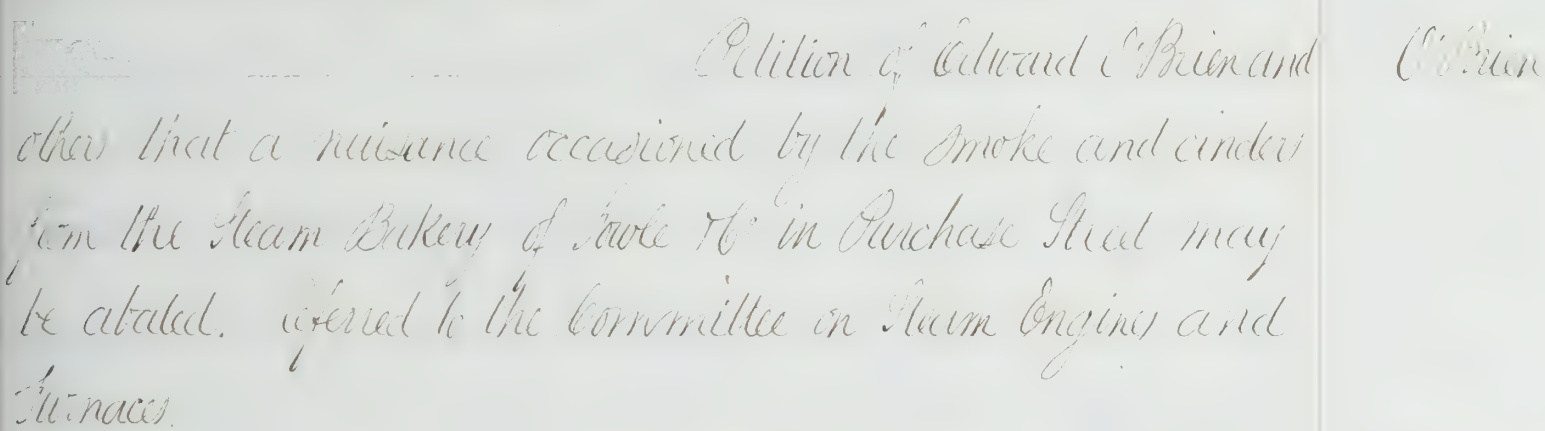 Petition of Edward O'Brien and O'Brien
others that a nuisance occasioned by the smoke and cinders
from the Steam Bakery of Fowle & Co in Purchase Street may
be abated. referred to the Committee on Steam Engines and
Furnaces.